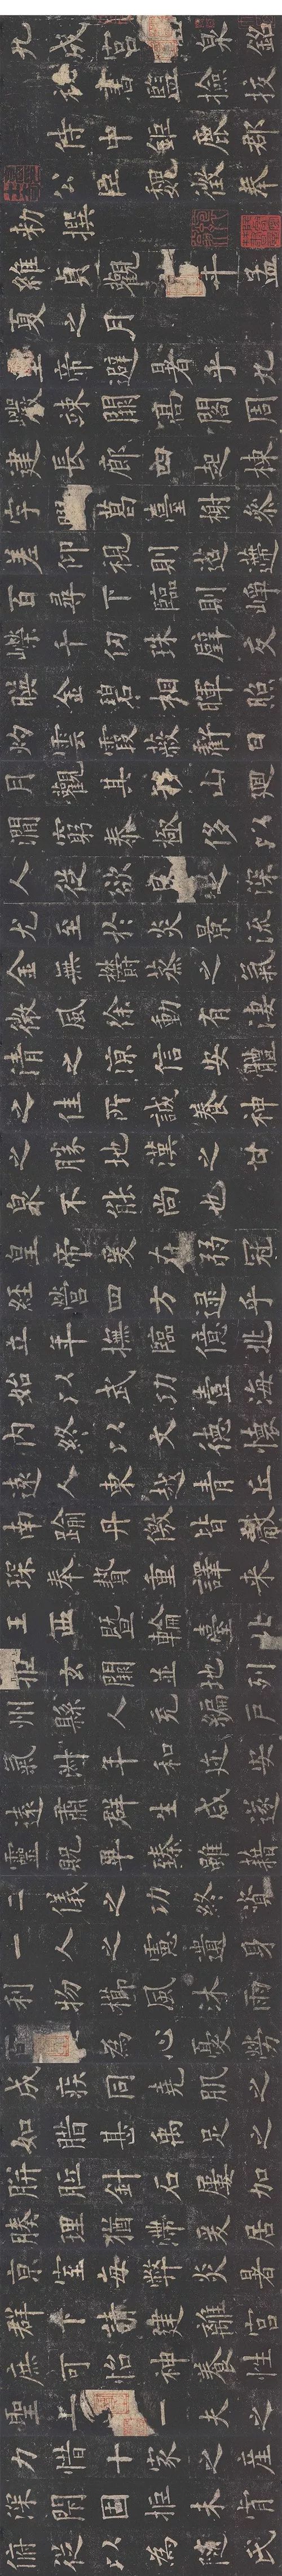 九成宮泉銘
秘書監撿校
侍中鉅鹿郡
公臣魏徵奉
勑撰
維貞觀年孟
夏之月
皇帝避暑乎九
巖竦闕高閣周
建長廊四起棟
宇膠葛臺榭參
差仰視則迢遰
百尋下臨則崢
嶸千仞珠璧交
暎金碧相暉照
灼雲霞蔽虧日
月觀其移山迴
澗窮泰極侈以
人從欲足深
尤至於炎景流
金無鬱蒸之氣
微風徐動有淒
清之涼信安體
之佳所誠養神
之勝地漢之甘
泉不能尚也
皇帝爰在弱冠
經營四方逮乎
立年撫臨億兆
始以武功壹海
內終以文德懷
遠人東越青丘
南踰丹儌皆獻
琛奉贄重譯來
王西暨輪臺北
拒玄闕並地列
州縣人充編戶
氣淑年和邇安
遠肅群生咸遂
靈貺畢臻雖藉
二儀之功終資
一人之慮遺身
利物櫛風沐雨
百為心憂勞
成疾同堯肌之
如腊甚禹足之
胼胝針石屢加
腠理猶滯爰居
京室每弊炎暑
群下請建離宮
庶可怡神養性
聖上一夫之
力惜十家之產
深閉固拒未肯
俯從以為隨氏